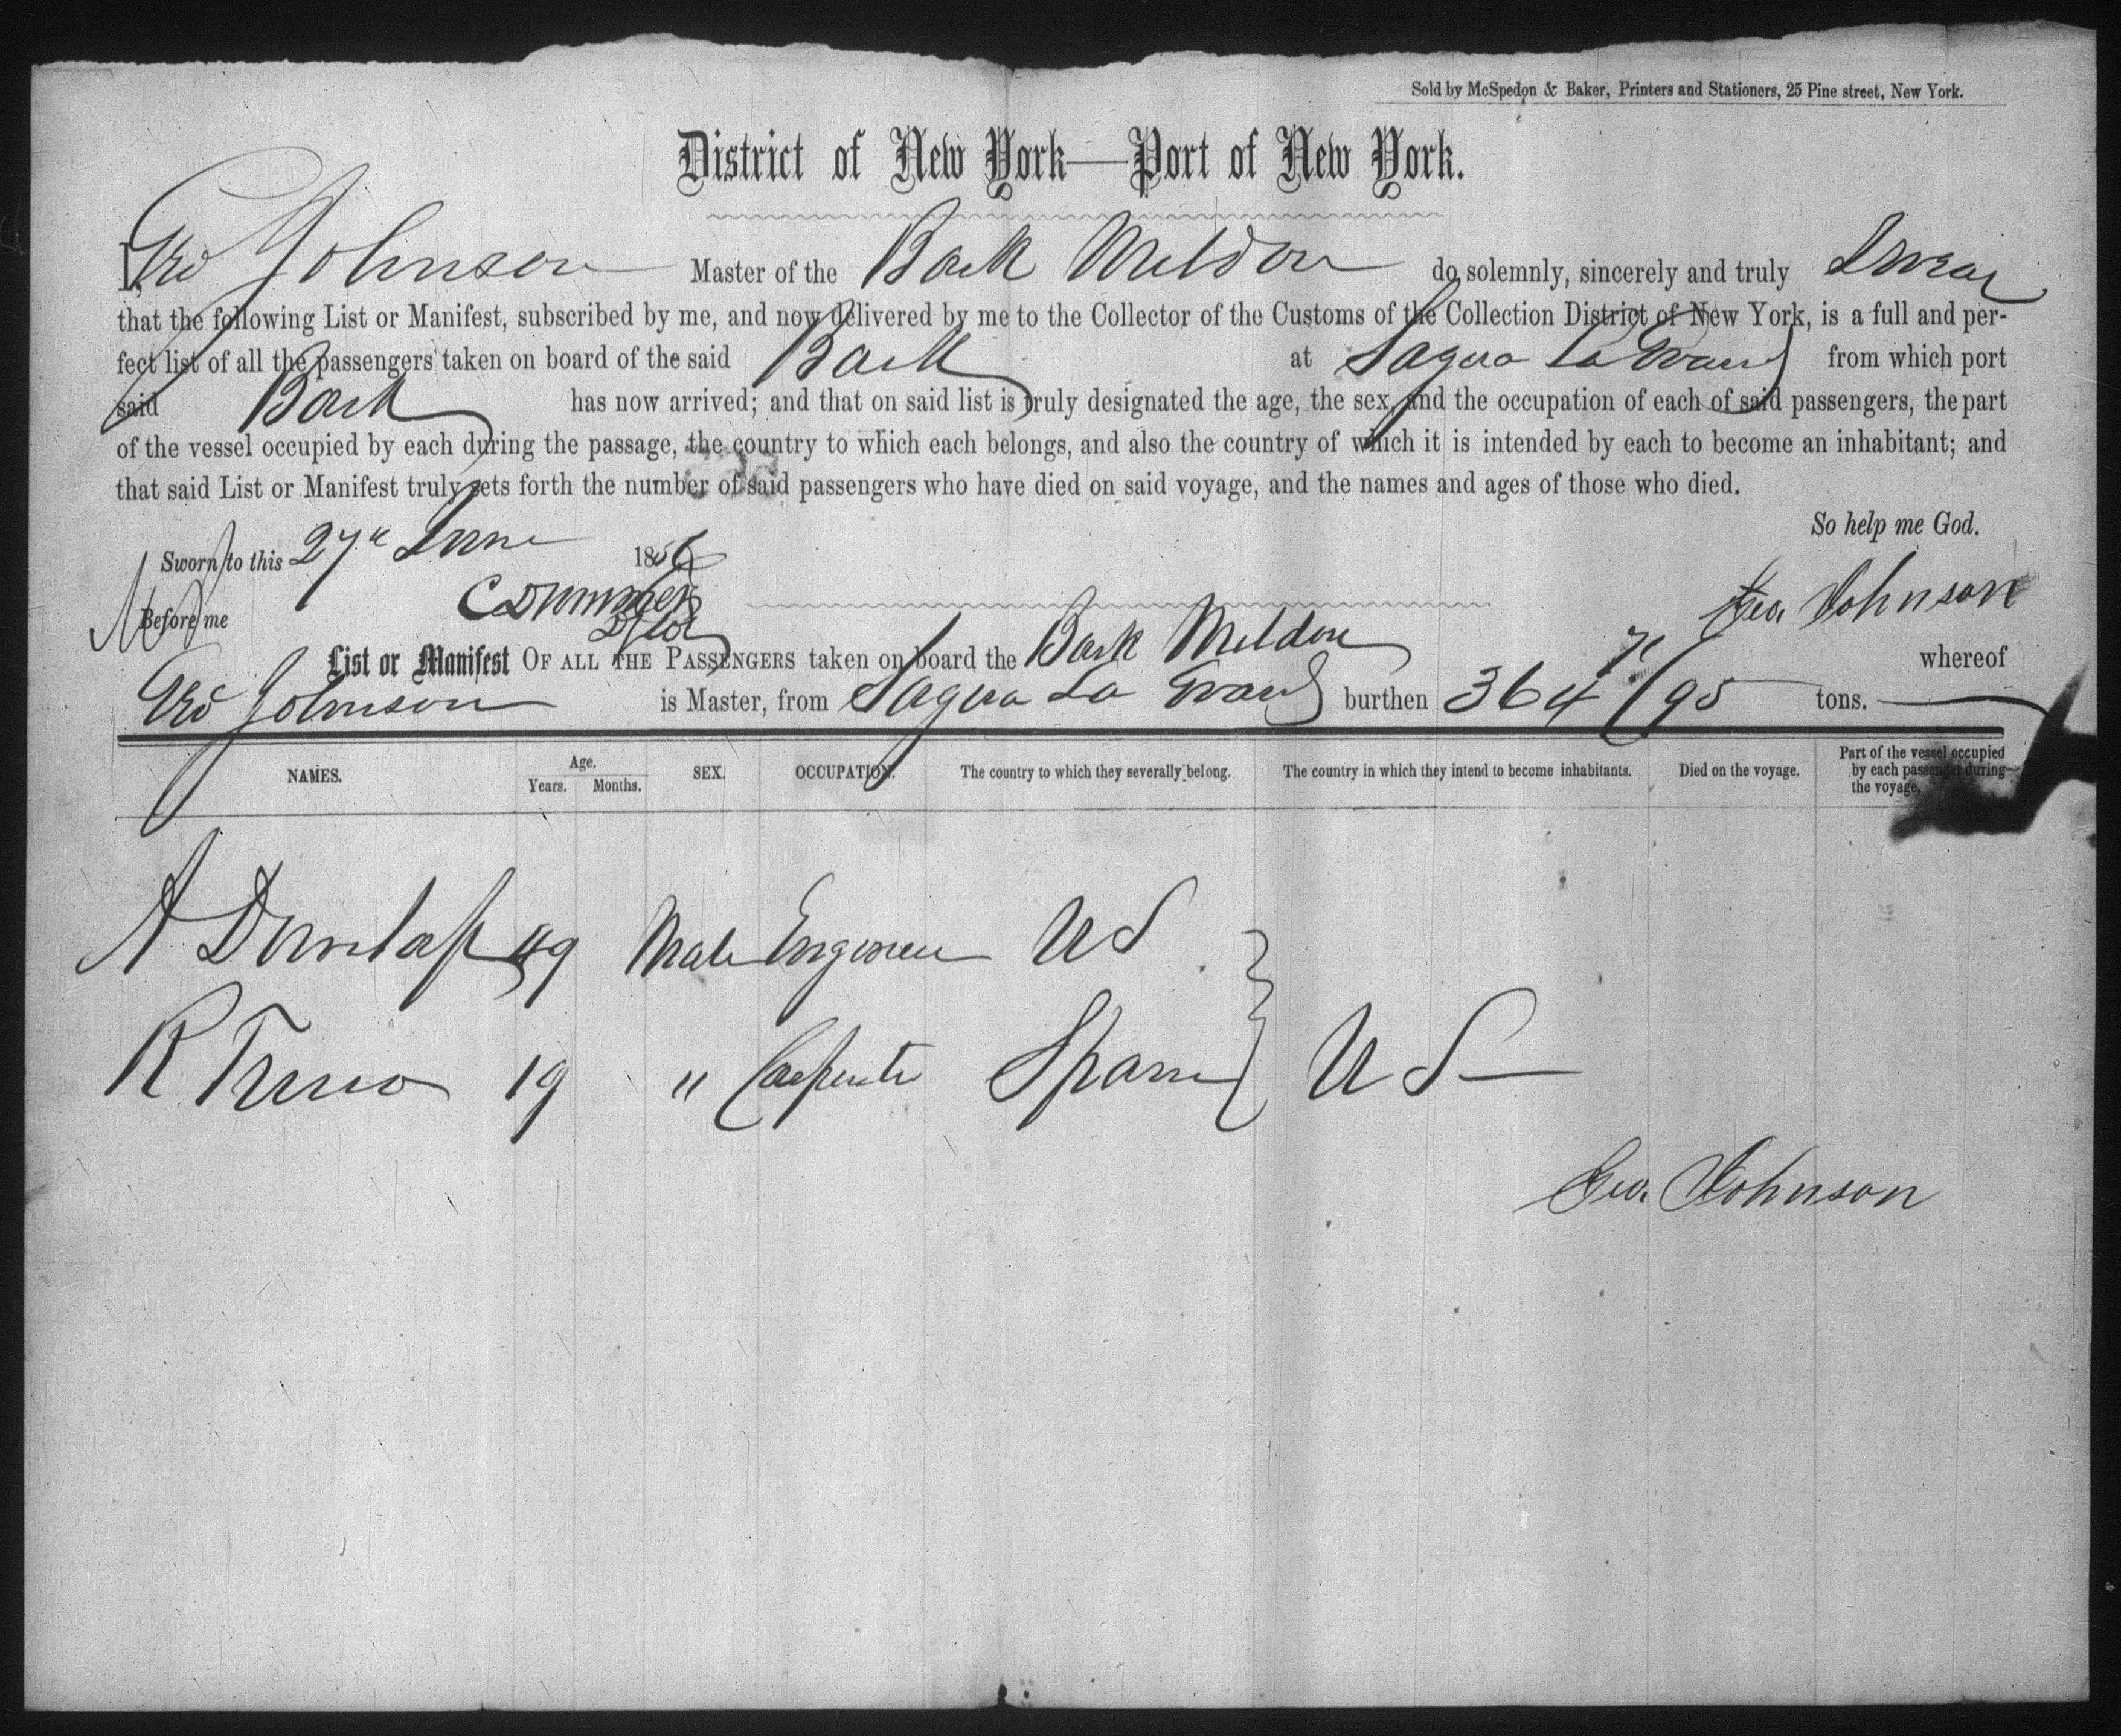 Sold by McSpedon & Baker, Printers and Stationers, 25 Pine street, New York.
District of New York—Port of New York.
I, Geo Johnson Master of the Bark Meldon do solemnly, sincerely and truly Swear
that the following List or Manifest, subscribed by me, and now delivered by me to the Collector of the Customs of the Collection District of New York, is a full and per-
fect list of all the passengers taken on board of the said Bark at Sagua La Grand from which port
said Bark has now arrived; and that on said list is truly designated the age, the sex, and the occupation of each of said passengers, the part
of the vessel occupied by each during the passage, the country to which each belongs, and also the country of which it is intended by each to become an inhabitant; and
that said List or Manifest truly sets forth the number of said passengers who have died on said voyage, and the names and ages of those who died.
So help me God.
Sworn to this 27th June 1856
Before me Geo. Johnson
List or Manifest OF ALL THE PASSENGERS taken on board the Bark Meldon whereof
Geo Johnson is Master, from Sagua La Grand burthen 364 71/95 tons.
NAMES. Age. Years. Months. SEX. OCCUPATION. The country to which they severally belong. The country in which they intend to become inhabitants. Died on the voyage. Part of the vessel occupied by each passenger during the voyage.
A Dunlap 49 Male Engineer US
R 19 " Carpenter Spain US
Geo. Johnson